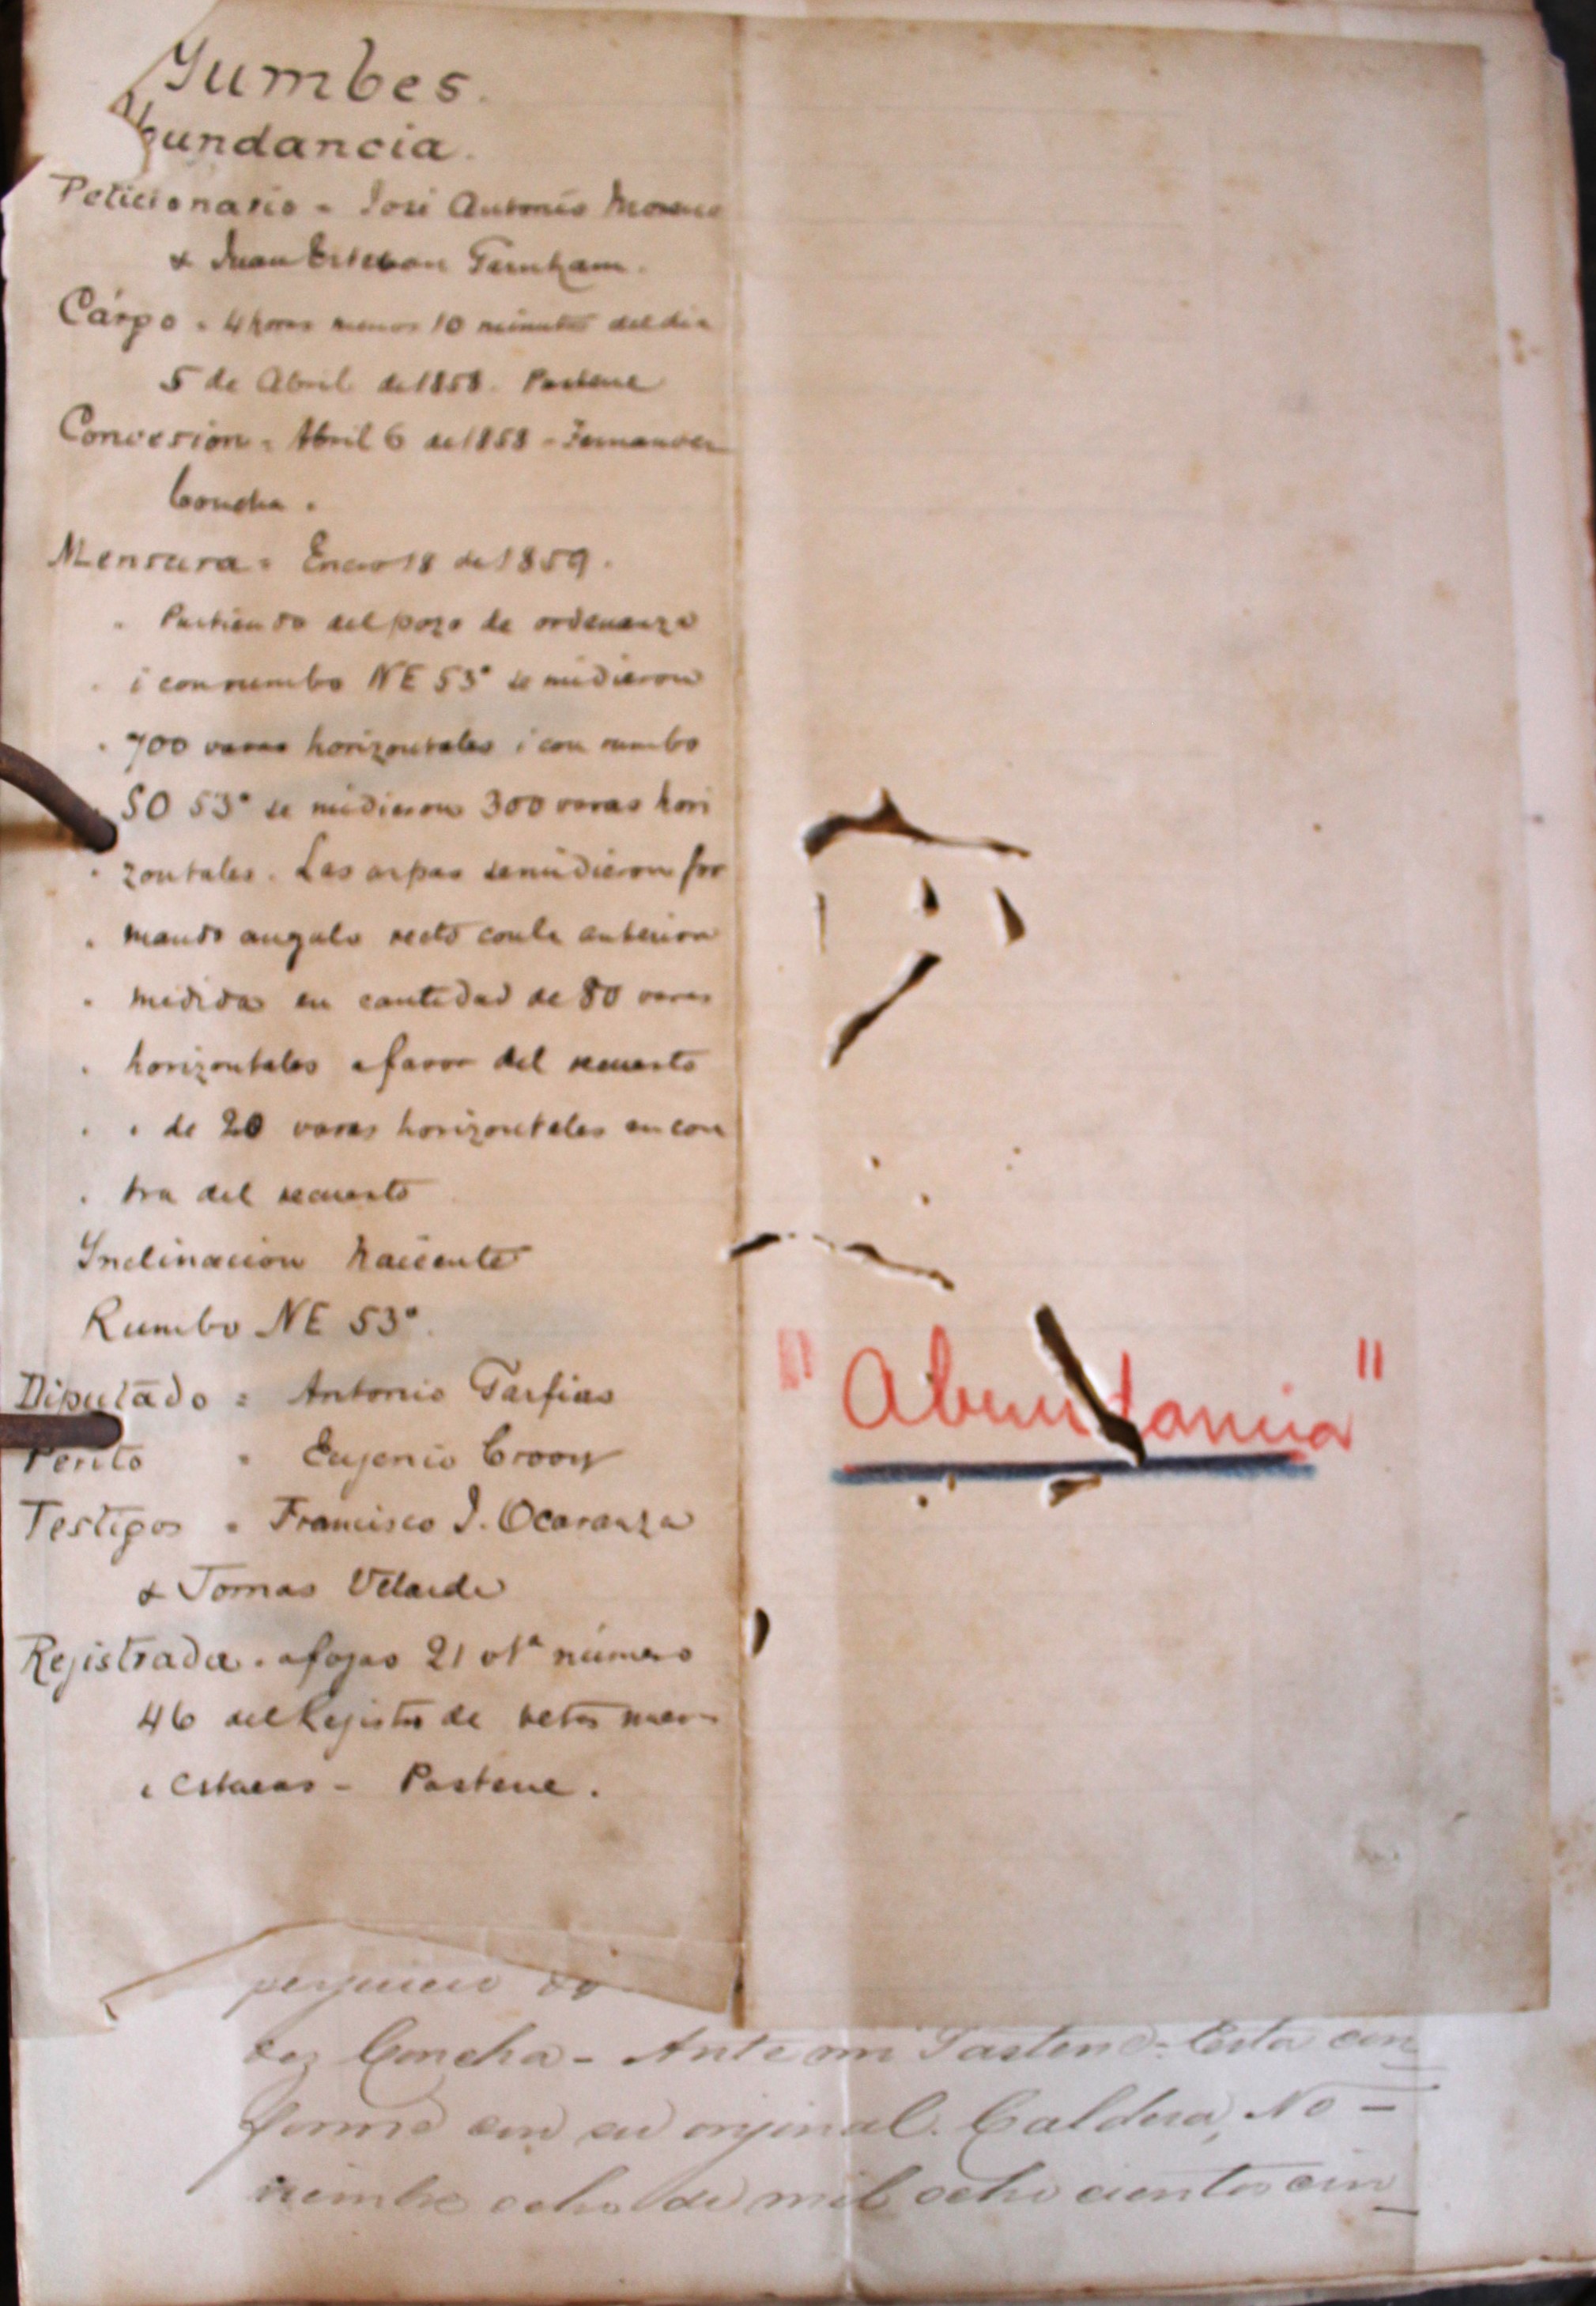 Yumbes.
Abundancia.
Peticionario = José Antonio Moreno
& Juan Estevan
Cárgo = 4 horas menos 10 minutos del dia
5 de Abril de 1858. Pastene
Concesion = Abril 6 de 1858 - Fernandez
Concha.
Mensura = Enero 18 de 1859.
" Partiendo del pozo de ordenanza
" i con rumbo NE 53° se midieron
" 700 varas horizontales i con rumbo
" SO 53° se midieron 300 varas hori
" zontales. Las aspas se midieron for
" mando angulo recto con la anterior
" medida en cantidad de 80 varas
" horizontales a favor del recuesto
" i de 20 varas horizontales en con
" tra del recuesto
Inclinacion naciente
Rumbo NE 53°.
Diputado = Antonio Garfias
Perito = Eujenio
Testigos = Francisco J. Ocaranza
& Tomas Velarde
Rejistrada = a fojas 21 vta número
46 del Rejistro de vetas nuevas
i Estacas - Pastene.
"Abundancia"
perjuicio
dez Concha - Ante mi Pastene = Esta con
forme con su orijinal. Caldera, No -
viembre ocho de mil ocho cientos cin